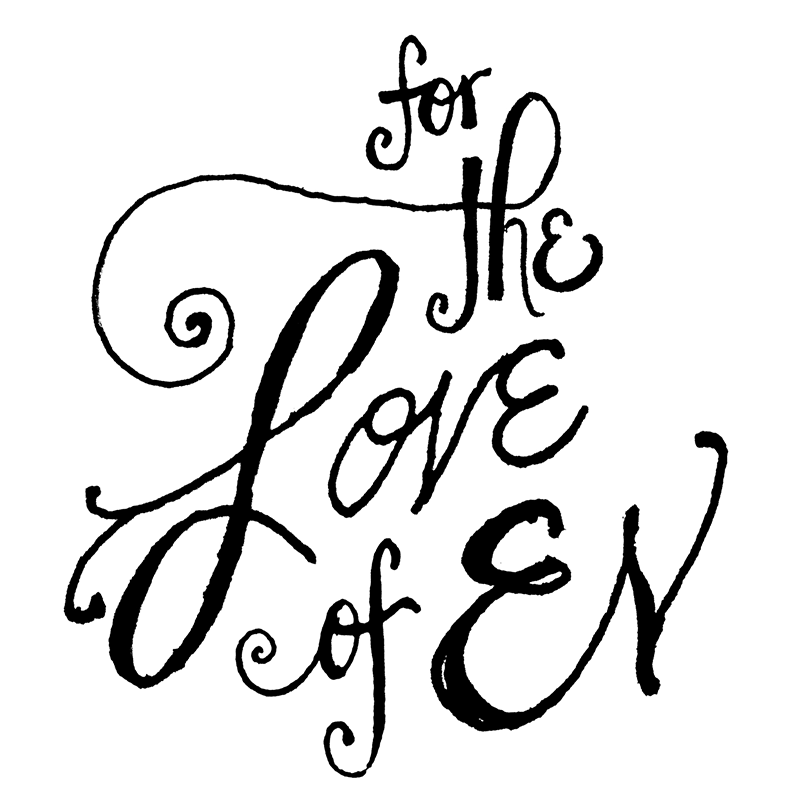 for
the
Love
of EN